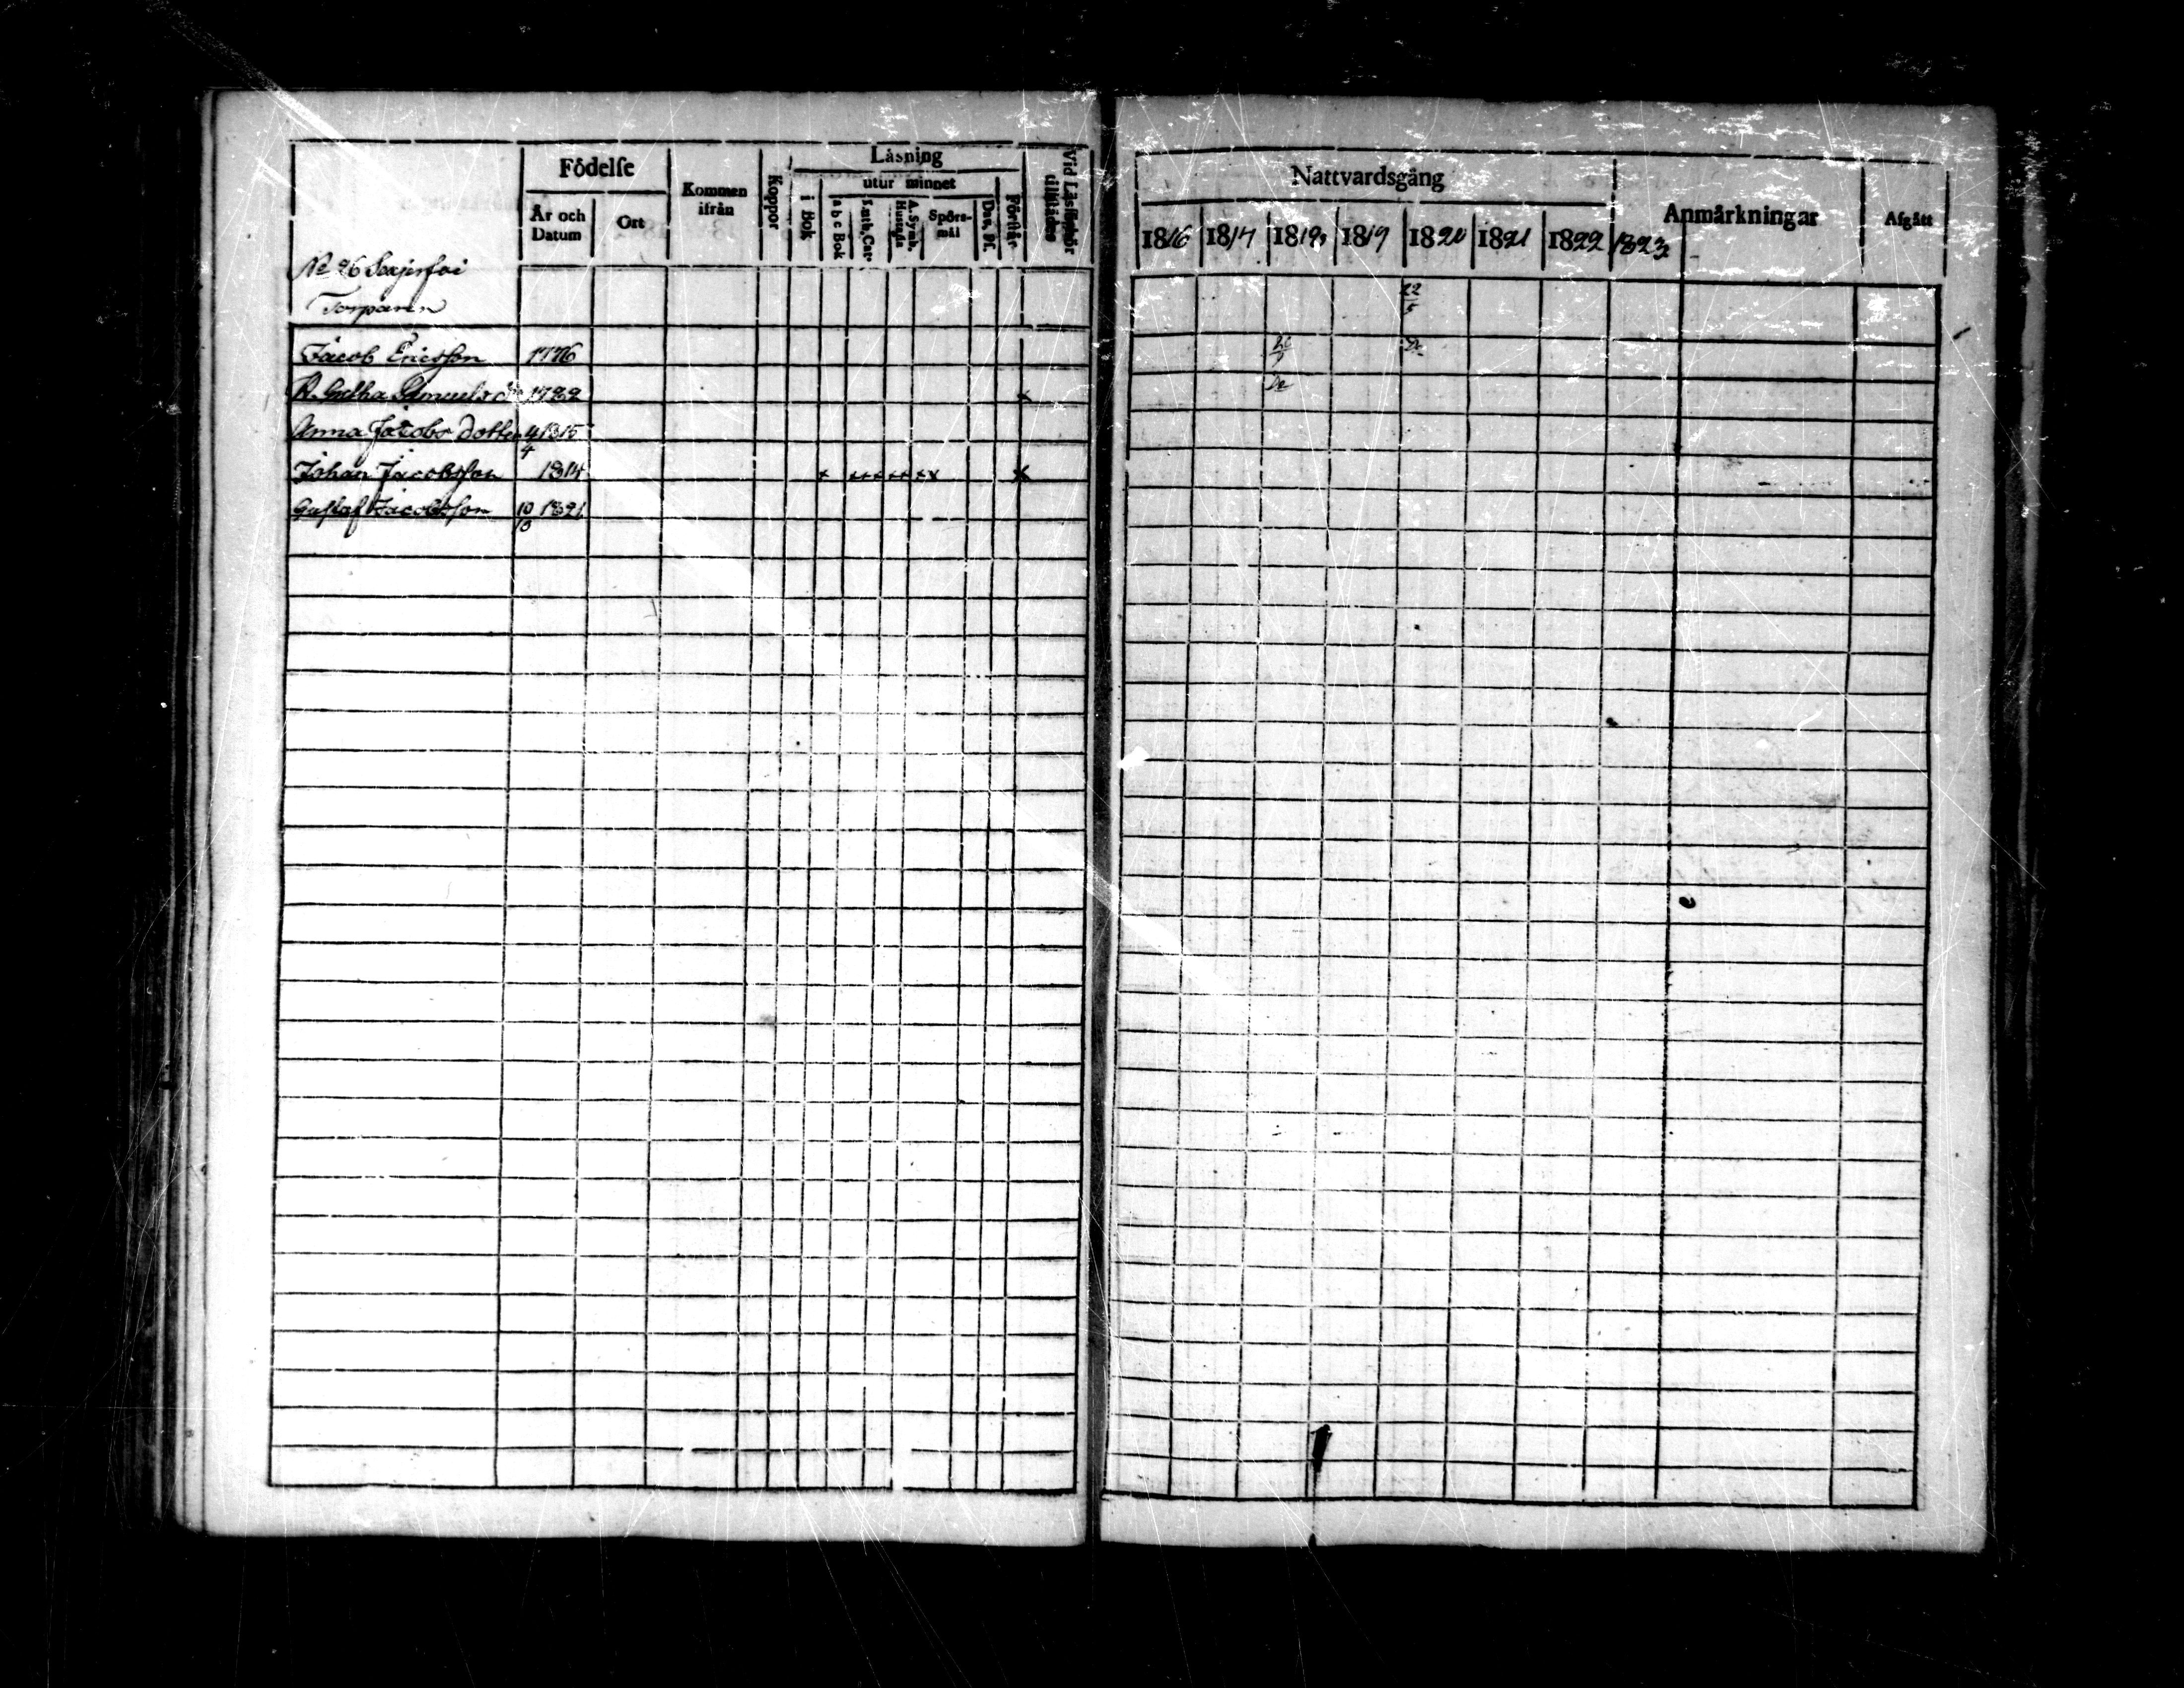 Födelse
Kommen ifrån
Koppor
Läsning
Vid Läsförhör tillstädes
År och Datum
Ort
i Bok
utur minnet
a b c Bok
Luth. Cat.
A. Symb. Hustafla
Spörs-mål
Dav. Ps.
Förstår
Nattvardsgång
Anmärkningar
Afgått
1816 1817 1818 1819 1820 1821 1822 1823
No 26
Torparen
22/5
Jacob Ericsson 1776
Samuelsdr 1789
Anna Jacobs Dotter 4/4 1815
Johan Jacobsson 1814
Gustaf Jacobsson 10/8 1821